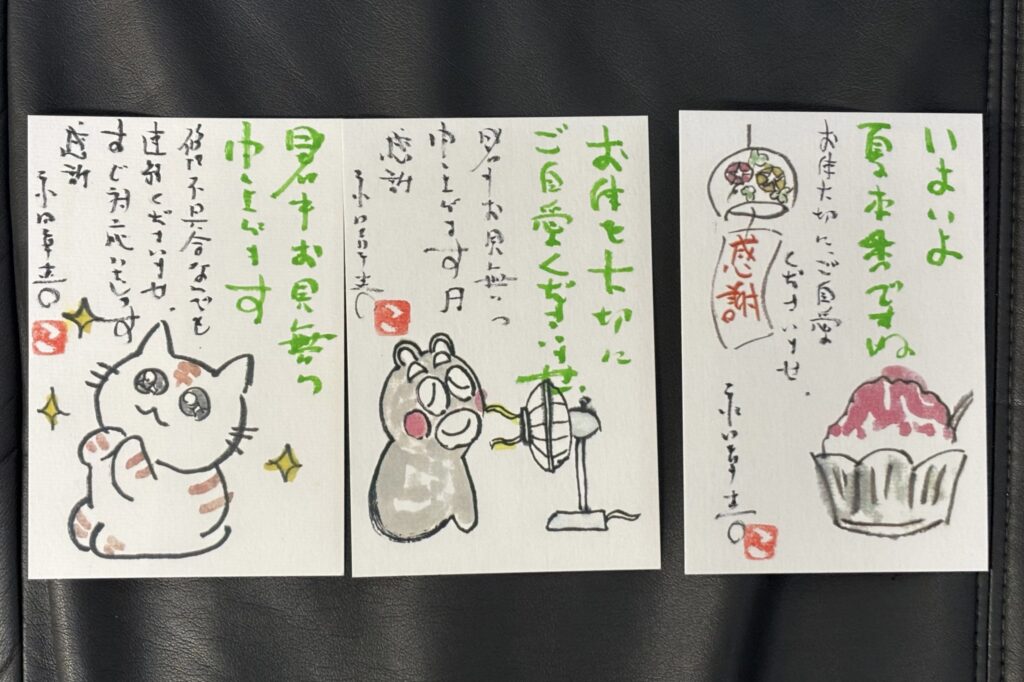 暑中お見舞い
申し上げます
不具合などでも
連絡くださいませ。
すぐ対応いたします
感謝
お体を大切に
ご自愛くださいませ
暑中お見舞い
申し上げます
感謝
いよいよ
夏本番ですね
お体大切に、ご自愛
くださいませ。
感謝。